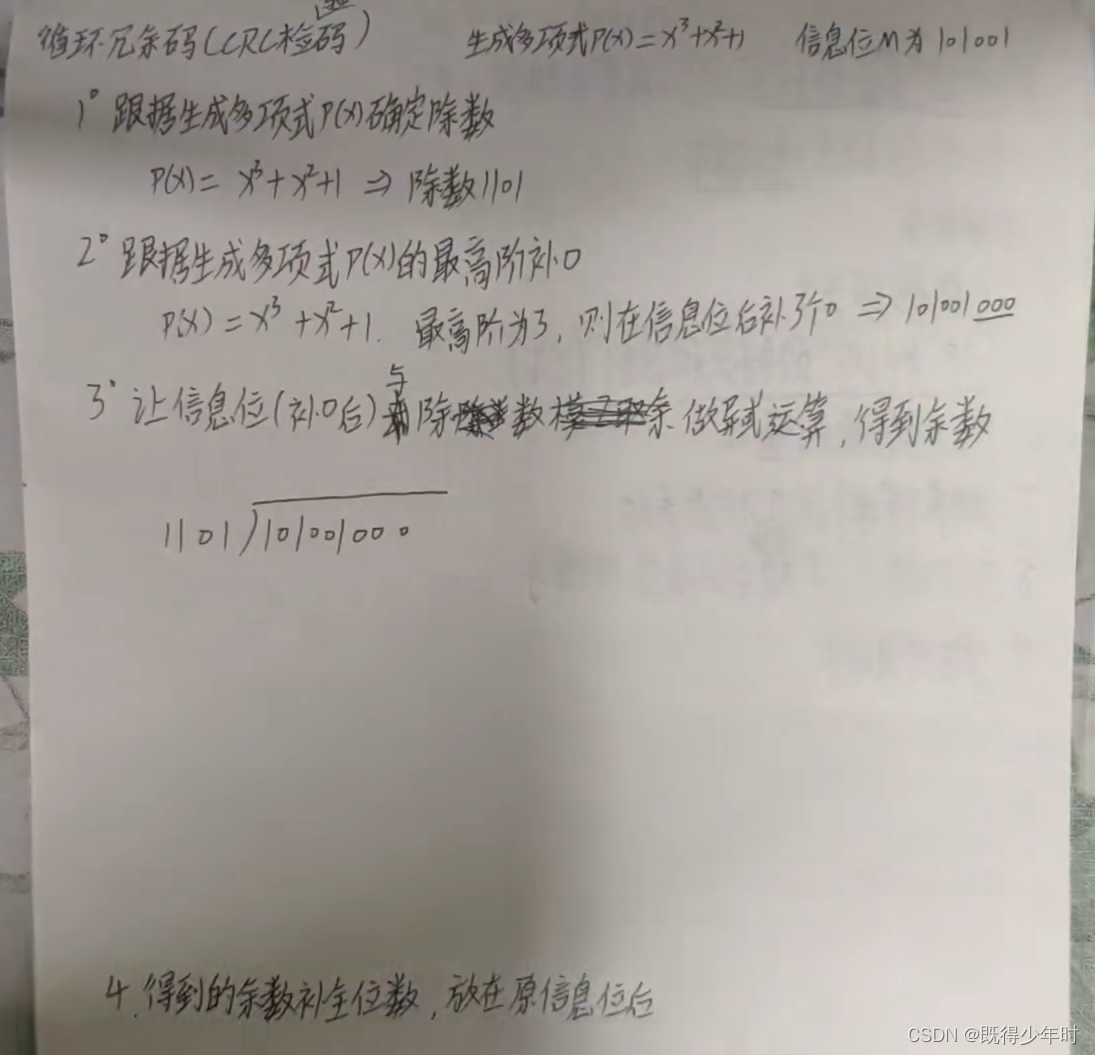 循环冗余码(CRC检码) 生成多项式P(x)=x³+x²+1 信息位M为101001
1° 跟据生成多项式P(x)确定除数
P(x)= x³+x²+1 ⇒ 除数1101
2° 跟据生成多项式P(x)的最高阶补0
P(x)=x³+x²+1. 最高阶为3,则在信息位后补3个0 ⇒ 101001000
3° 让信息位(补0后)与除数做异或运算,得到余数
1101)101001000
4.得到的余数补全位数,放在原信息位后
CSDN @既得少年时